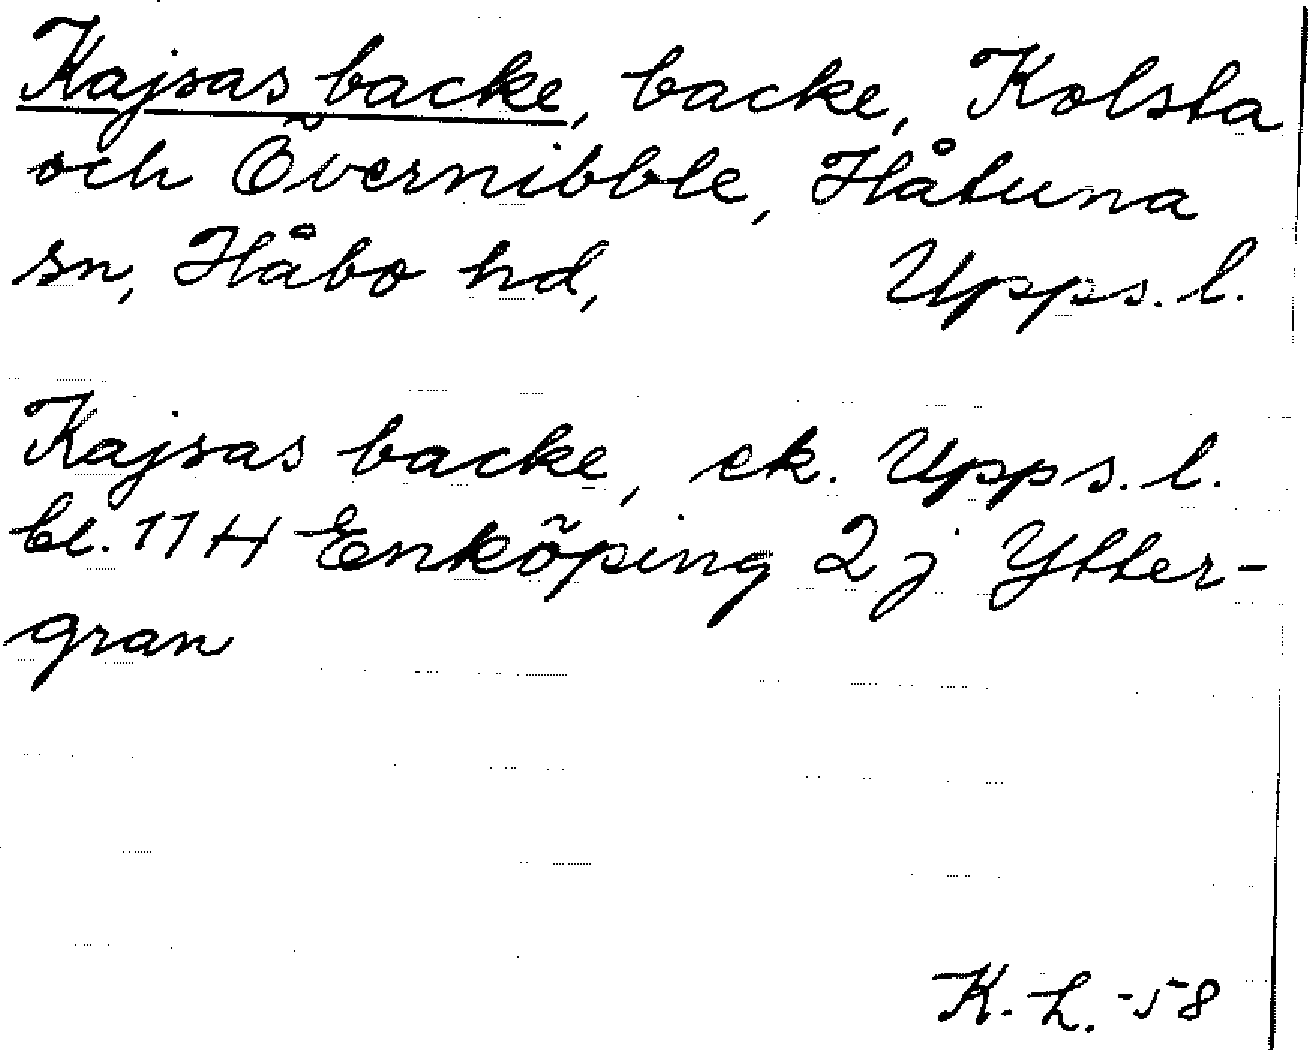 Kajsas backe, backe, Kolsta
och Övernibble, Håtuna
sn, Håbo hd, Upps. l.
Kajsas backe, ek. Upps. l.
bl. 11 H Enköping 2 j Ytter-
gran
K. L. -58